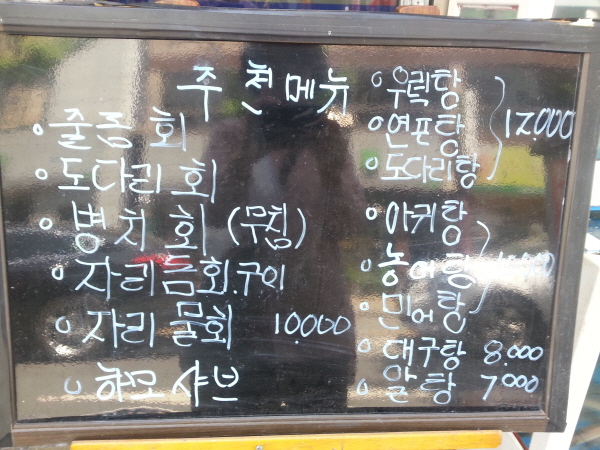 추천메뉴
줄돔 회
도다리 회
병치 회 (무침)
자리돔회.구이
자리 물회 10.000
하모 샤브
우럭탕
연포탕
도다리탕
12.000
아귀탕
농어탕
민어탕
대구탕 8.000
알탕 7000